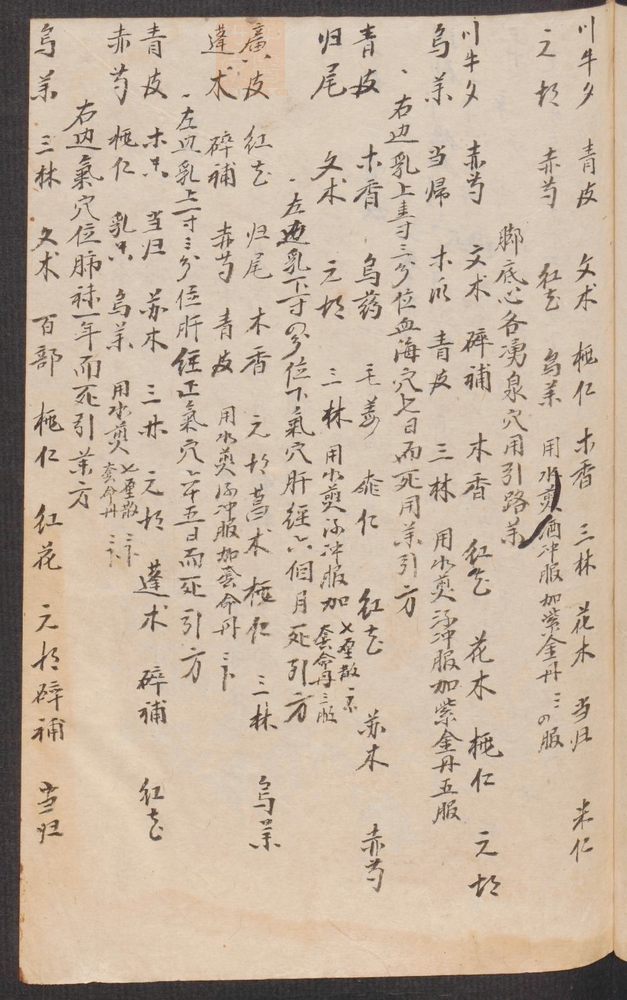 川牛夕 青皮 文术 桃仁 木香 三林 花木 当归 米仁
元胡 赤芍 红花 乌药 用水煎酒冲服加紫金丹三四服
脚底心各湧泉穴用引路药
川牛夕 赤芍 文术 碎補 木香 红花 花木 桃仁 元胡
乌药 当歸 木瓜 青皮 三林 用水煎酒冲服加紫金丹五服
右边乳上一寸三分位血海穴七日而死用药引方
青皮 木香 乌药 桃仁 红花 苏木 赤芍
归尾 文术 元胡 三林 用水煎酒冲服加 七厘散 奪命丹三服
左边乳下一寸四分位下氣穴肝經六個月死引方
廣皮 红花 归尾 木香 元胡 莪术 桃仁 三林 乌药
蓬术 碎補 赤芍 青皮 用水煎酒冲服加奪命丹三下
左边乳上一寸三分位肝經正氣穴 五日而死引方
青皮 木香 当归 苏木 三林 元胡 蓬术 碎補 红花
赤芍 桃仁 乳香 乌药 用水煎 七厘散 奪命丹
右边氣穴位肺 一年而死引药方
乌药 三林 文术 百部 桃仁 红花 元胡 碎補 当归